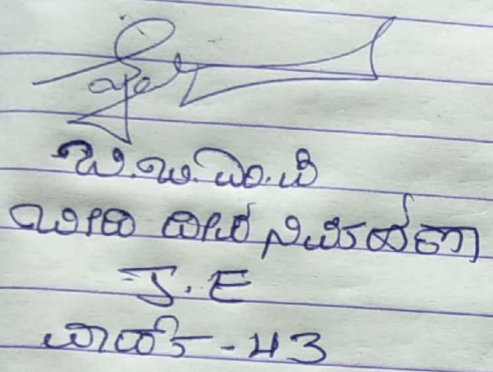 ಬಿ.ಬಿ.ಎಂ.ಪಿ
ಬೀದಿ ದೀಪ ನಿರ್ವಹಣಾ
J.E
ವಾರ್ಡ್ - 43